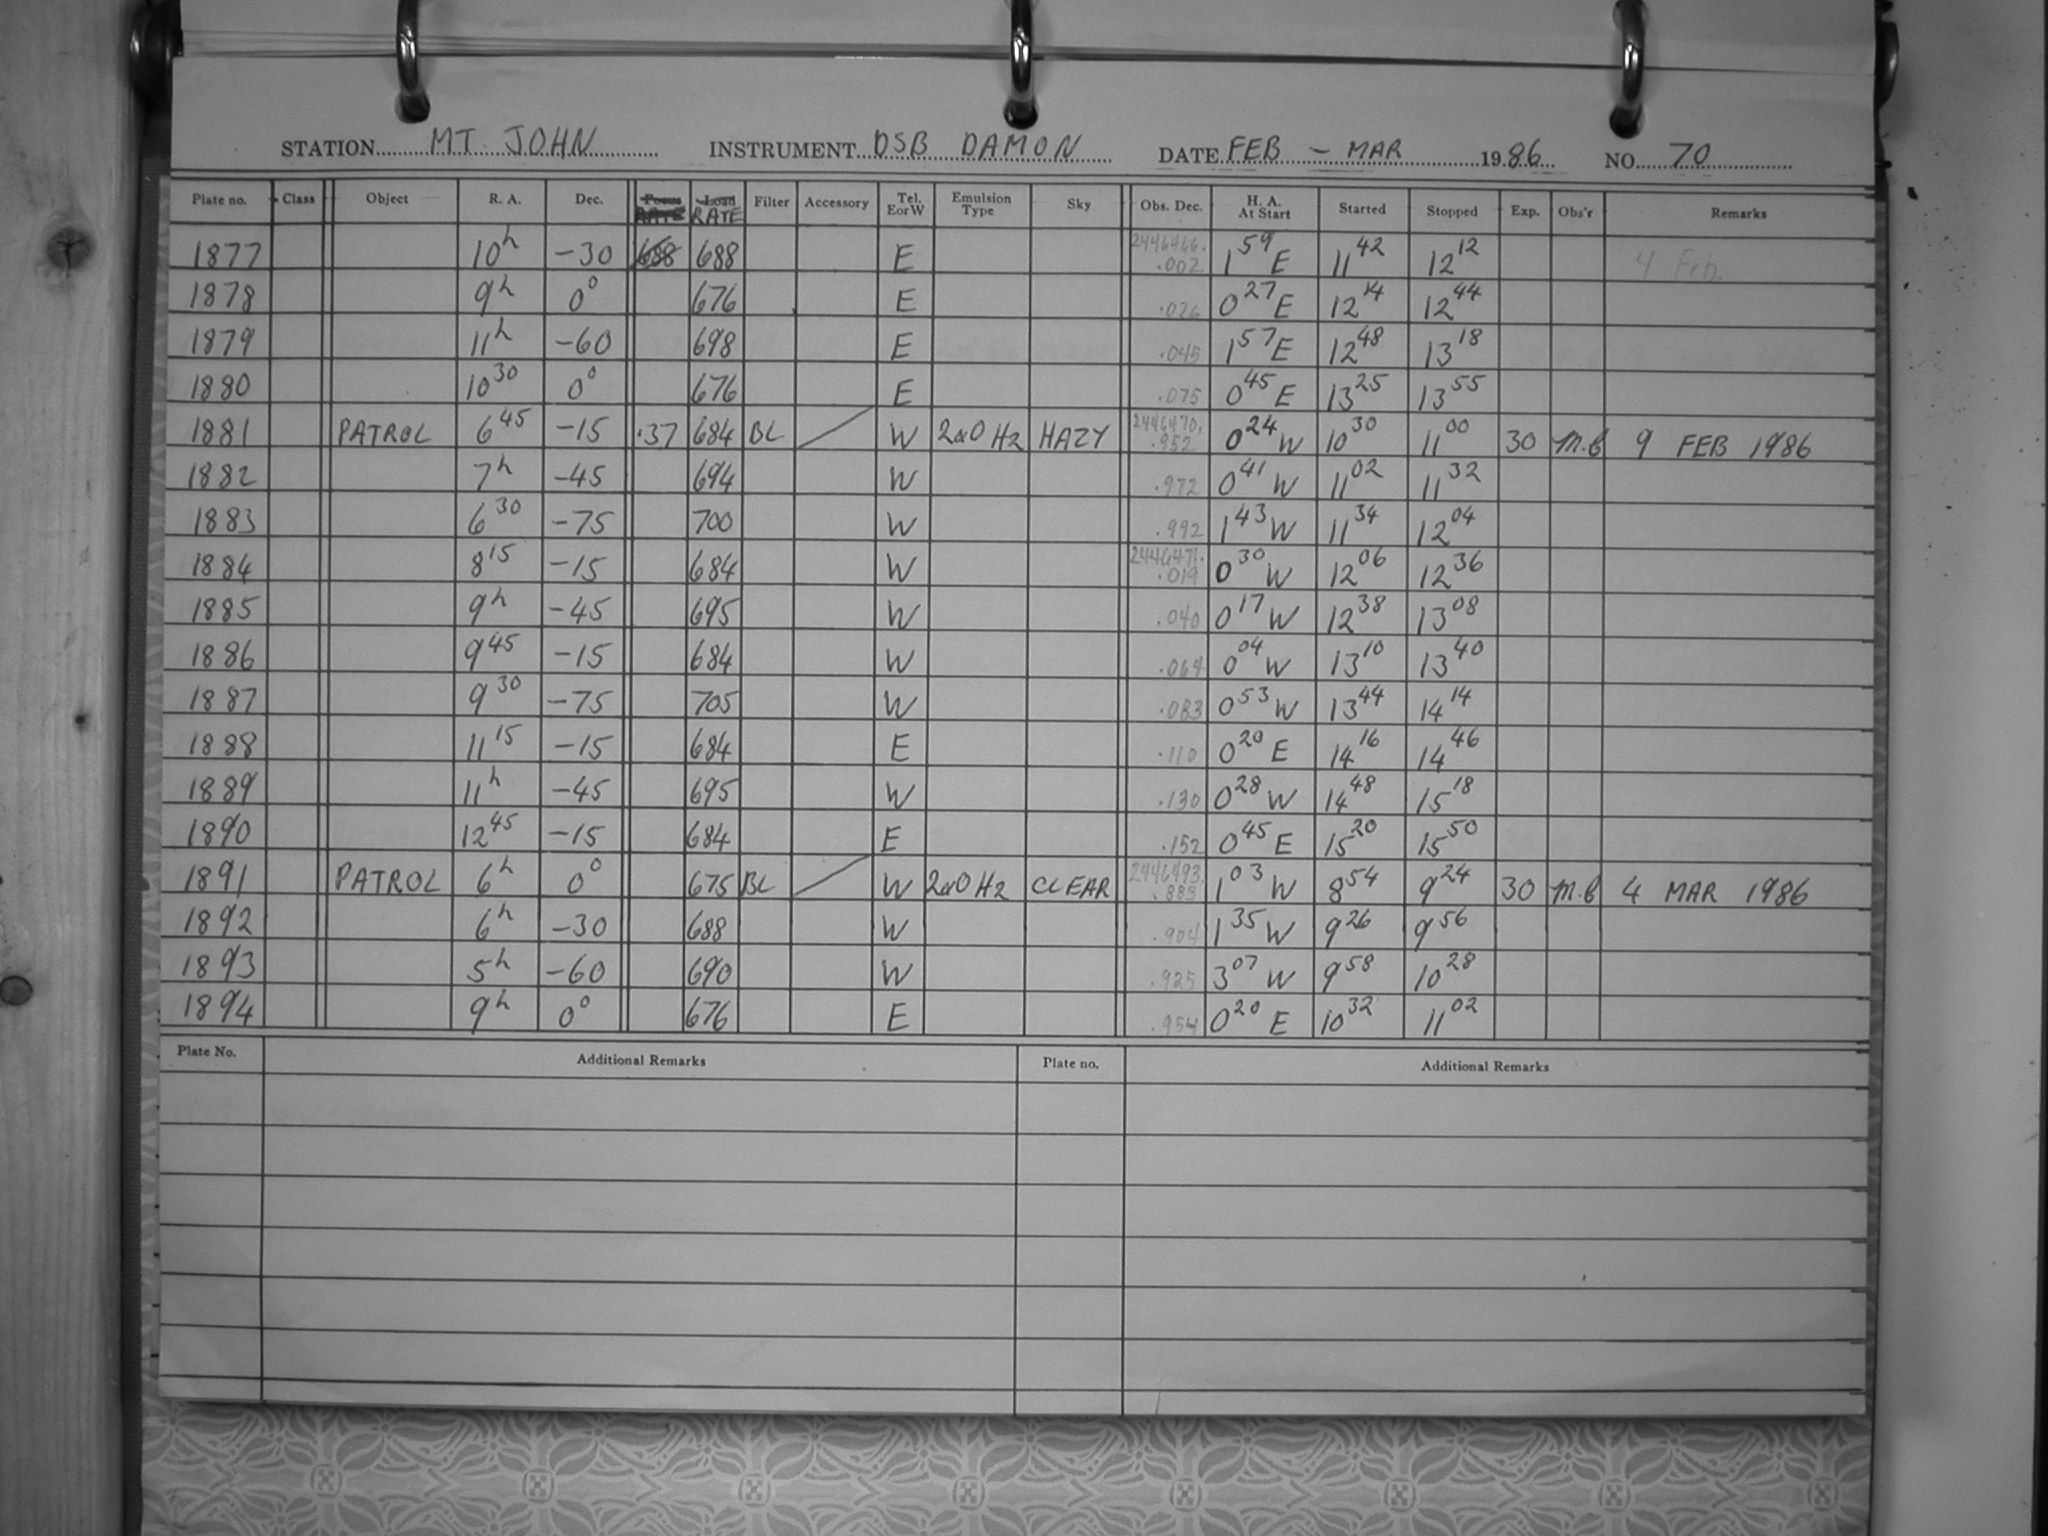 STATION MT JOHN INSTRUMENT DSB DAMON DATE FEB - MAR 1986 NO. 70
Plate no. Class Object R. A. Dec. Focus RATE Load RATE Filter Accessory Tel. E or W Emulsion Type Sky Obs. Dec. H. A. At Start Started Stopped Exp. Obs'r Remarks
1877 10h -30 688 688 E 2446466.002 1 59 E 11 42 12 12 4 Feb.
1878 9h 0° 676 E .026 0 27 E 12 14 12 44
1879 11h -60 698 E .045 1 57 E 12 48 13 18
1880 10 30 0° 676 E .075 0 45 E 13 25 13 55
1881 PATROL 6 45 -15 .37 684 BL W 2aO H2 HAZY 2446470.952 0 24 W 10 30 11 00 30 M.C 9 FEB 1986
1882 7h -45 694 W .972 0 41 W 11 02 11 32
1883 6 30 -75 700 W .992 1 43 W 11 34 12 04
1884 8 15 -15 684 W 2446471.019 0 30 W 12 06 12 36
1885 9h -45 695 W .040 0 17 W 12 38 13 08
1886 9 45 -15 684 W .064 0 04 W 13 10 13 40
1887 9 30 -75 705 W .083 0 53 W 13 44 14 14
1888 11 15 -15 684 E .110 0 20 E 14 16 14 46
1889 11h -45 695 W .130 0 28 W 14 48 15 18
1890 12 45 -15 684 E .152 0 45 E 15 20 15 50
1891 PATROL 6h 0° 675 BL W 2aO H2 CLEAR 2446493.883 1 03 W 8 54 9 24 30 M.C 4 MAR 1986
1892 6h -30 688 W .904 1 35 W 9 26 9 56
1893 5h -60 690 W .925 3 07 W 9 58 10 28
1894 9h 0° 676 E .954 0 20 E 10 32 11 02
Plate No. Additional Remarks Plate no. Additional Remarks